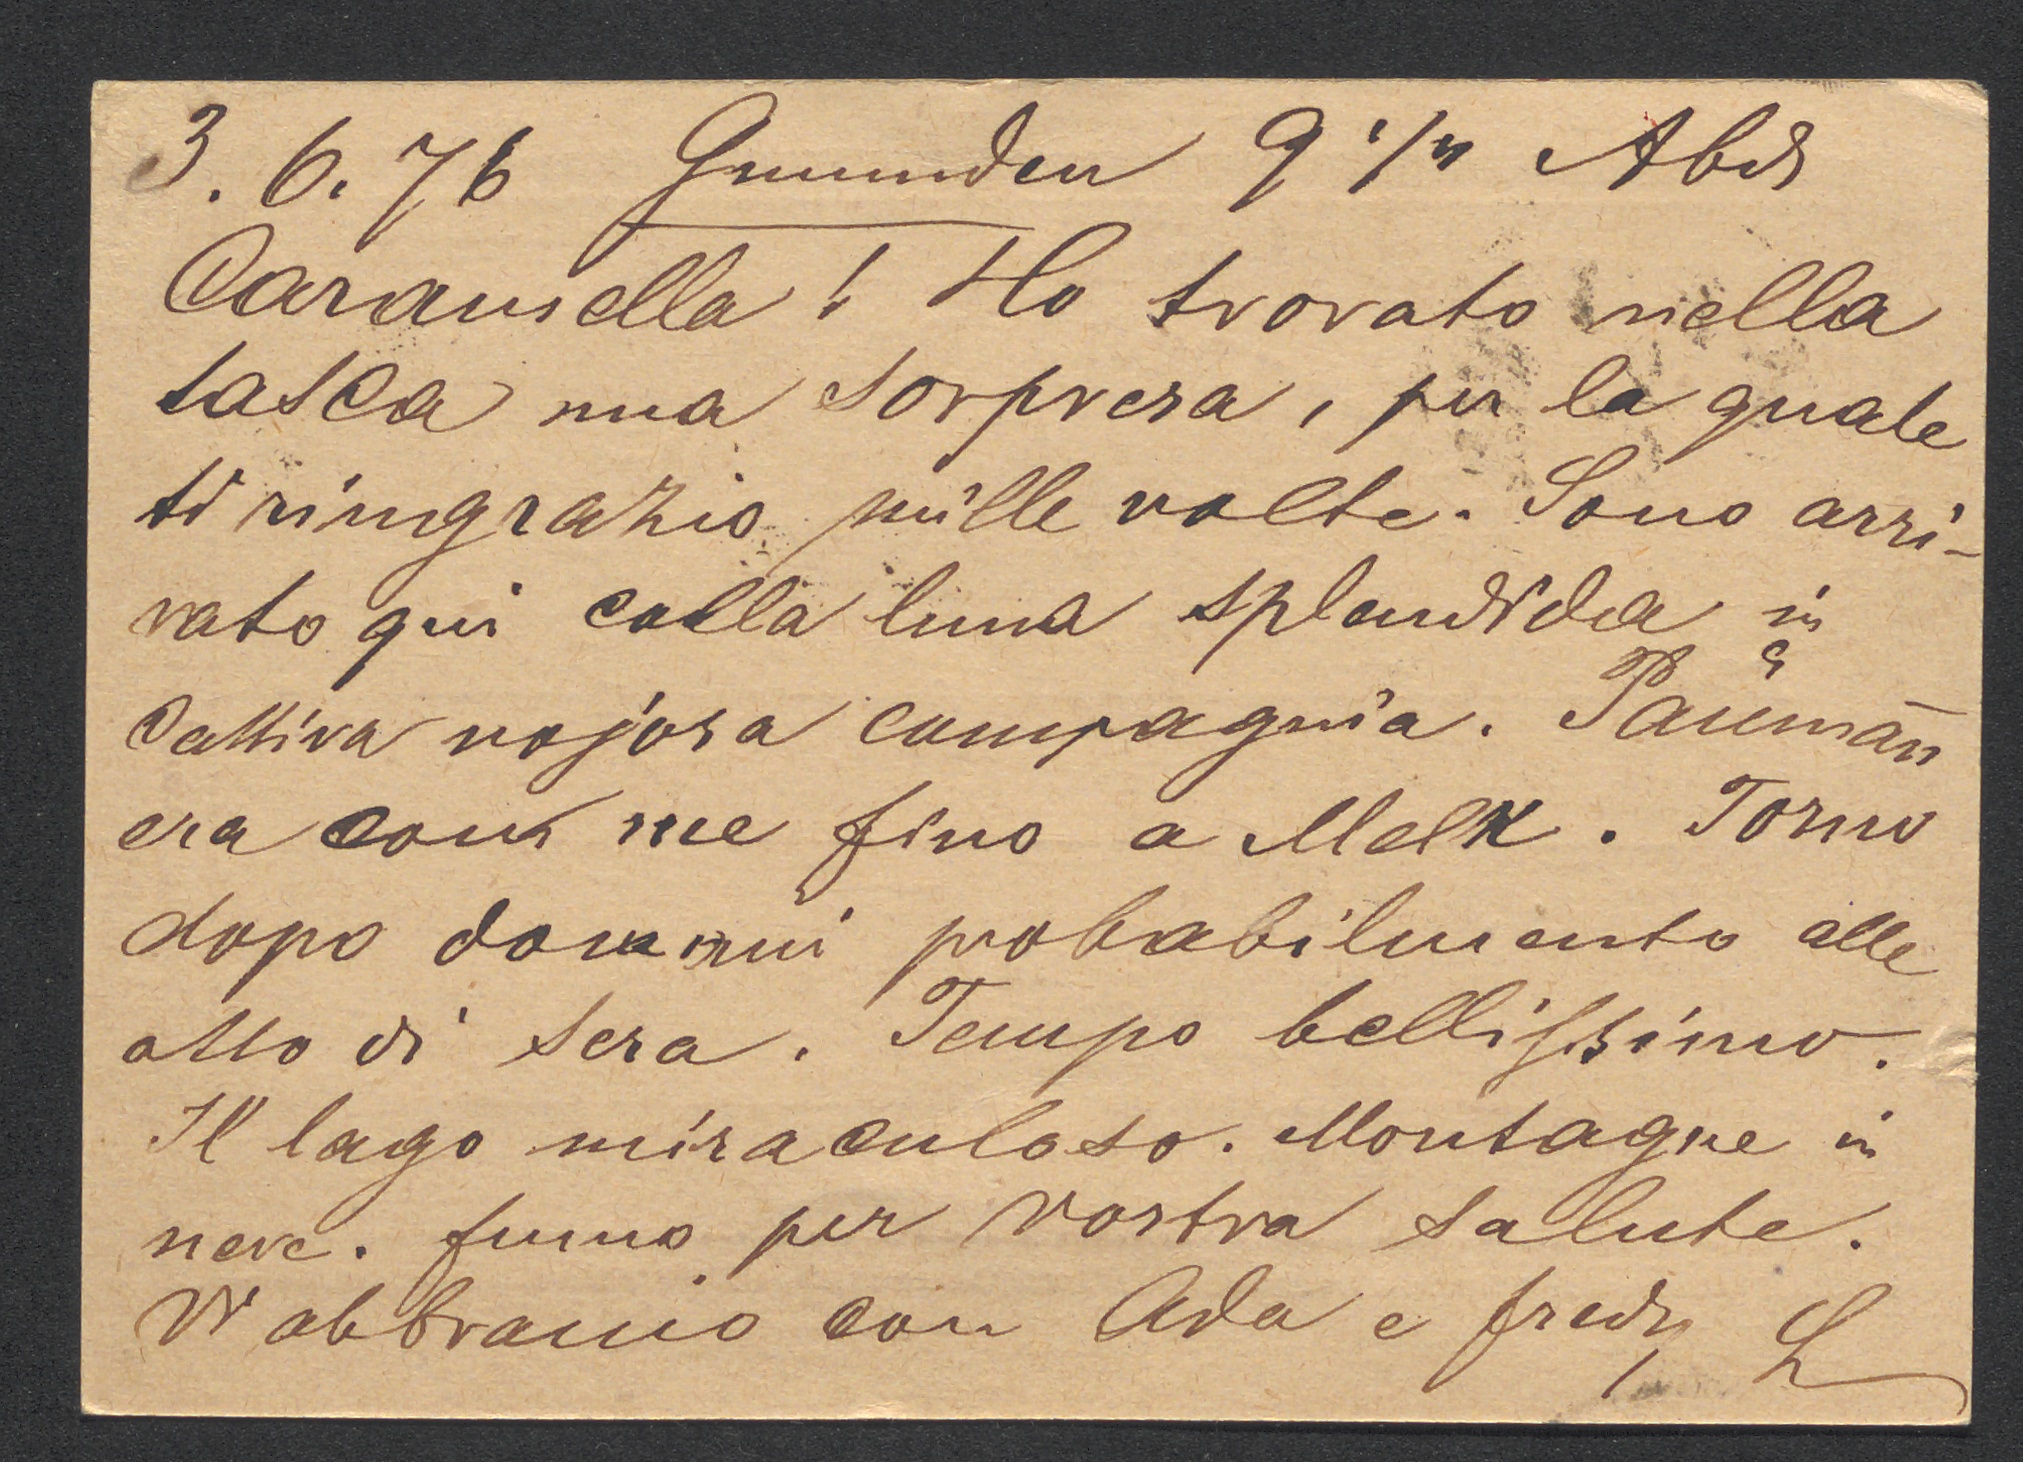 3. 6. 76 Gmunden 9 1/2 Abds
Caramella! Ho trovato nella
tasca una sorpresa, per la quale
ti ringrazio mille volte. Sono arri-
vato qui colla luna splendida in
cattiva nojosa compagnia. Paŭman̄
era con me fino a Melk. Torno
dopo domani probabilmente alle
otto di sera. Tempo bellissimo.
Il lago miraculoso. Montagne in
neve. fumo per vostra salute.
Vi abbraccio con Ada e fredy L